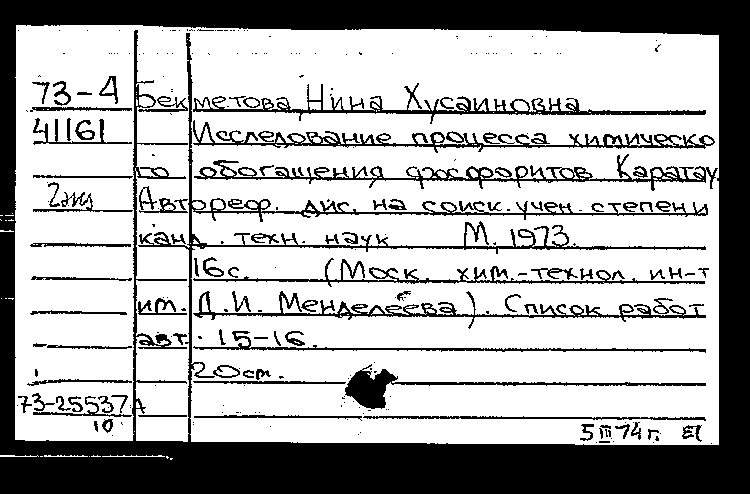 73-4 Бекметова, Нина Хусаиновна
41161 Исследование процесса химическо
го обогащения фосфоритов Каратау.
2 экз Автореф. дис. на соиск. учен. степени
канд. техн. наук М., 1973.
16 с. (Моск. хим.-технол. ин-т
им. Д.И. Менделеева). Список работ
авт. 15-16.
20 см.
73-25537А
10
5 III 74 г.